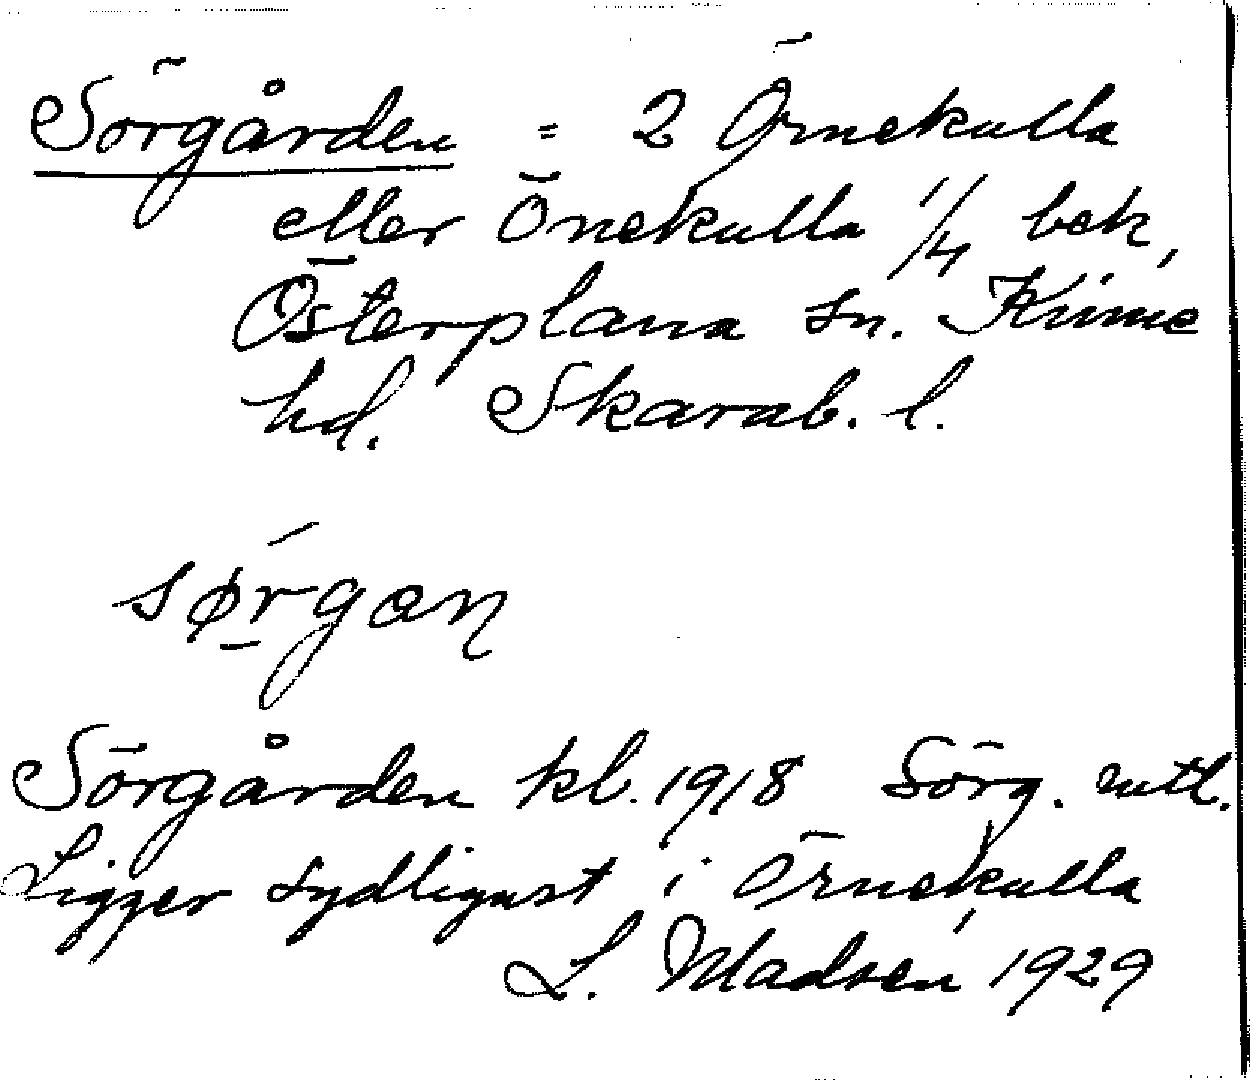 Sörgården = 2 Örnekulla
eller Önekulla 1/4 bek,
Österplana sn. Kinne
hd. Skarab. l.
sørgan
Sörgården kl. 1918 Sörg. mtl.
Ligger sydligast i Örnekulla
L. Madsén 1929